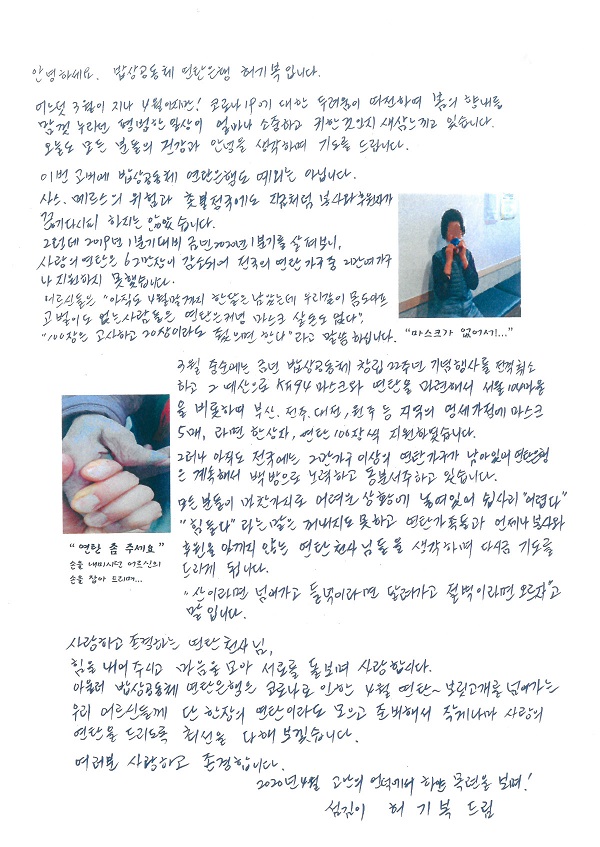 안녕하세요. 밥상공동체 연탄은행 허기복입니다.
어느덧 3월이 지나 4월이지만! 코로나19에 대한 두려움이 여전하며 봄의 향내를
맘껏 누리던 평범한 일상이 얼마나 소중하고 귀한 것인지 새삼 느끼고 있습니다.
오늘도 모든 분들의 건강과 안녕을 생각하며 기도를 드립니다.
이번 고비에 밥상공동체 연탄은행도 예외는 아닙니다.
사스. 메르스의 위험과 촛불정국에도 지금처럼 봉사와 후원자가
끊기다시피 하지는 않았습니다.
그런데 2019년 1분기 대비 금년 2020년 1분기를 살펴보니,
사랑의 연탄은 62만장이 감소되어 전국의 연탄가구 중 2만여가구
나 지원하지 못했습니다.
어르신들은 "아직도 4월말까지 한달은 남았는데 우리같이 몸도 아프
고 벌이도 없는 사람들은 연탄은커녕 마스크 살 돈도 없다".
"100장은 고사하고 20장이라도 줬으면 한다"라고 말씀하십니다.
"마스크가 없어서!..."
3월 중순에는 금년 밥상공동체 창립 22주년 기념행사를 전격 취소
하고 그 예산으로 KF94 마스크와 연탄을 마련해서 서울 104마을
을 비롯하여 부산. 전주. 대전, 원주 등 지역의 영세가정에 마스크
5매, 라면 한상자, 연탄 100장씩 지원하였습니다.
그러나 아직도 전국에는 2만가구 이상의 연탄가구가 남아있어 연탄은행
은 계속해서 백방으로 노력하고 동분서주하고 있습니다.
모든 분들이 마찬가지로 어려운 상황에 놓여있어 쉽사리 "어렵다"
"힘들다"라는 말은 꺼내지도 못하고 연탄가족들과 언제나 봉사와
후원을 아끼지 않는 연탄천사님들을 생각하며 다시금 기도를
드리게 됩니다.
"산이라면 넘어가고 들녘이라면 달려가고 절벽이라면 오르자"고
말입니다.
"연탄 좀 주세요"
손을 내미시던 어르신의
손을 잡아 드리며...
사랑하고 존경하는 연탄천사님,
힘을 내어주시고 마음을 모아 서로를 돌보며 사랑합시다.
아울러 밥상공동체 연탄은행은 코로나로 인한 4월 연탄~보릿고개를 넘어가는
우리 어르신들께 단 한장의 연탄이라도 모으고 준비해서 작게나마 사랑의
연탄을 드리도록 최선을 다해보겠습니다.
여러분 사랑하고 존경합니다.
2020년 4월 고난의 언덕에서 하얀 목련을 보며!
섬김이 허기복 드림